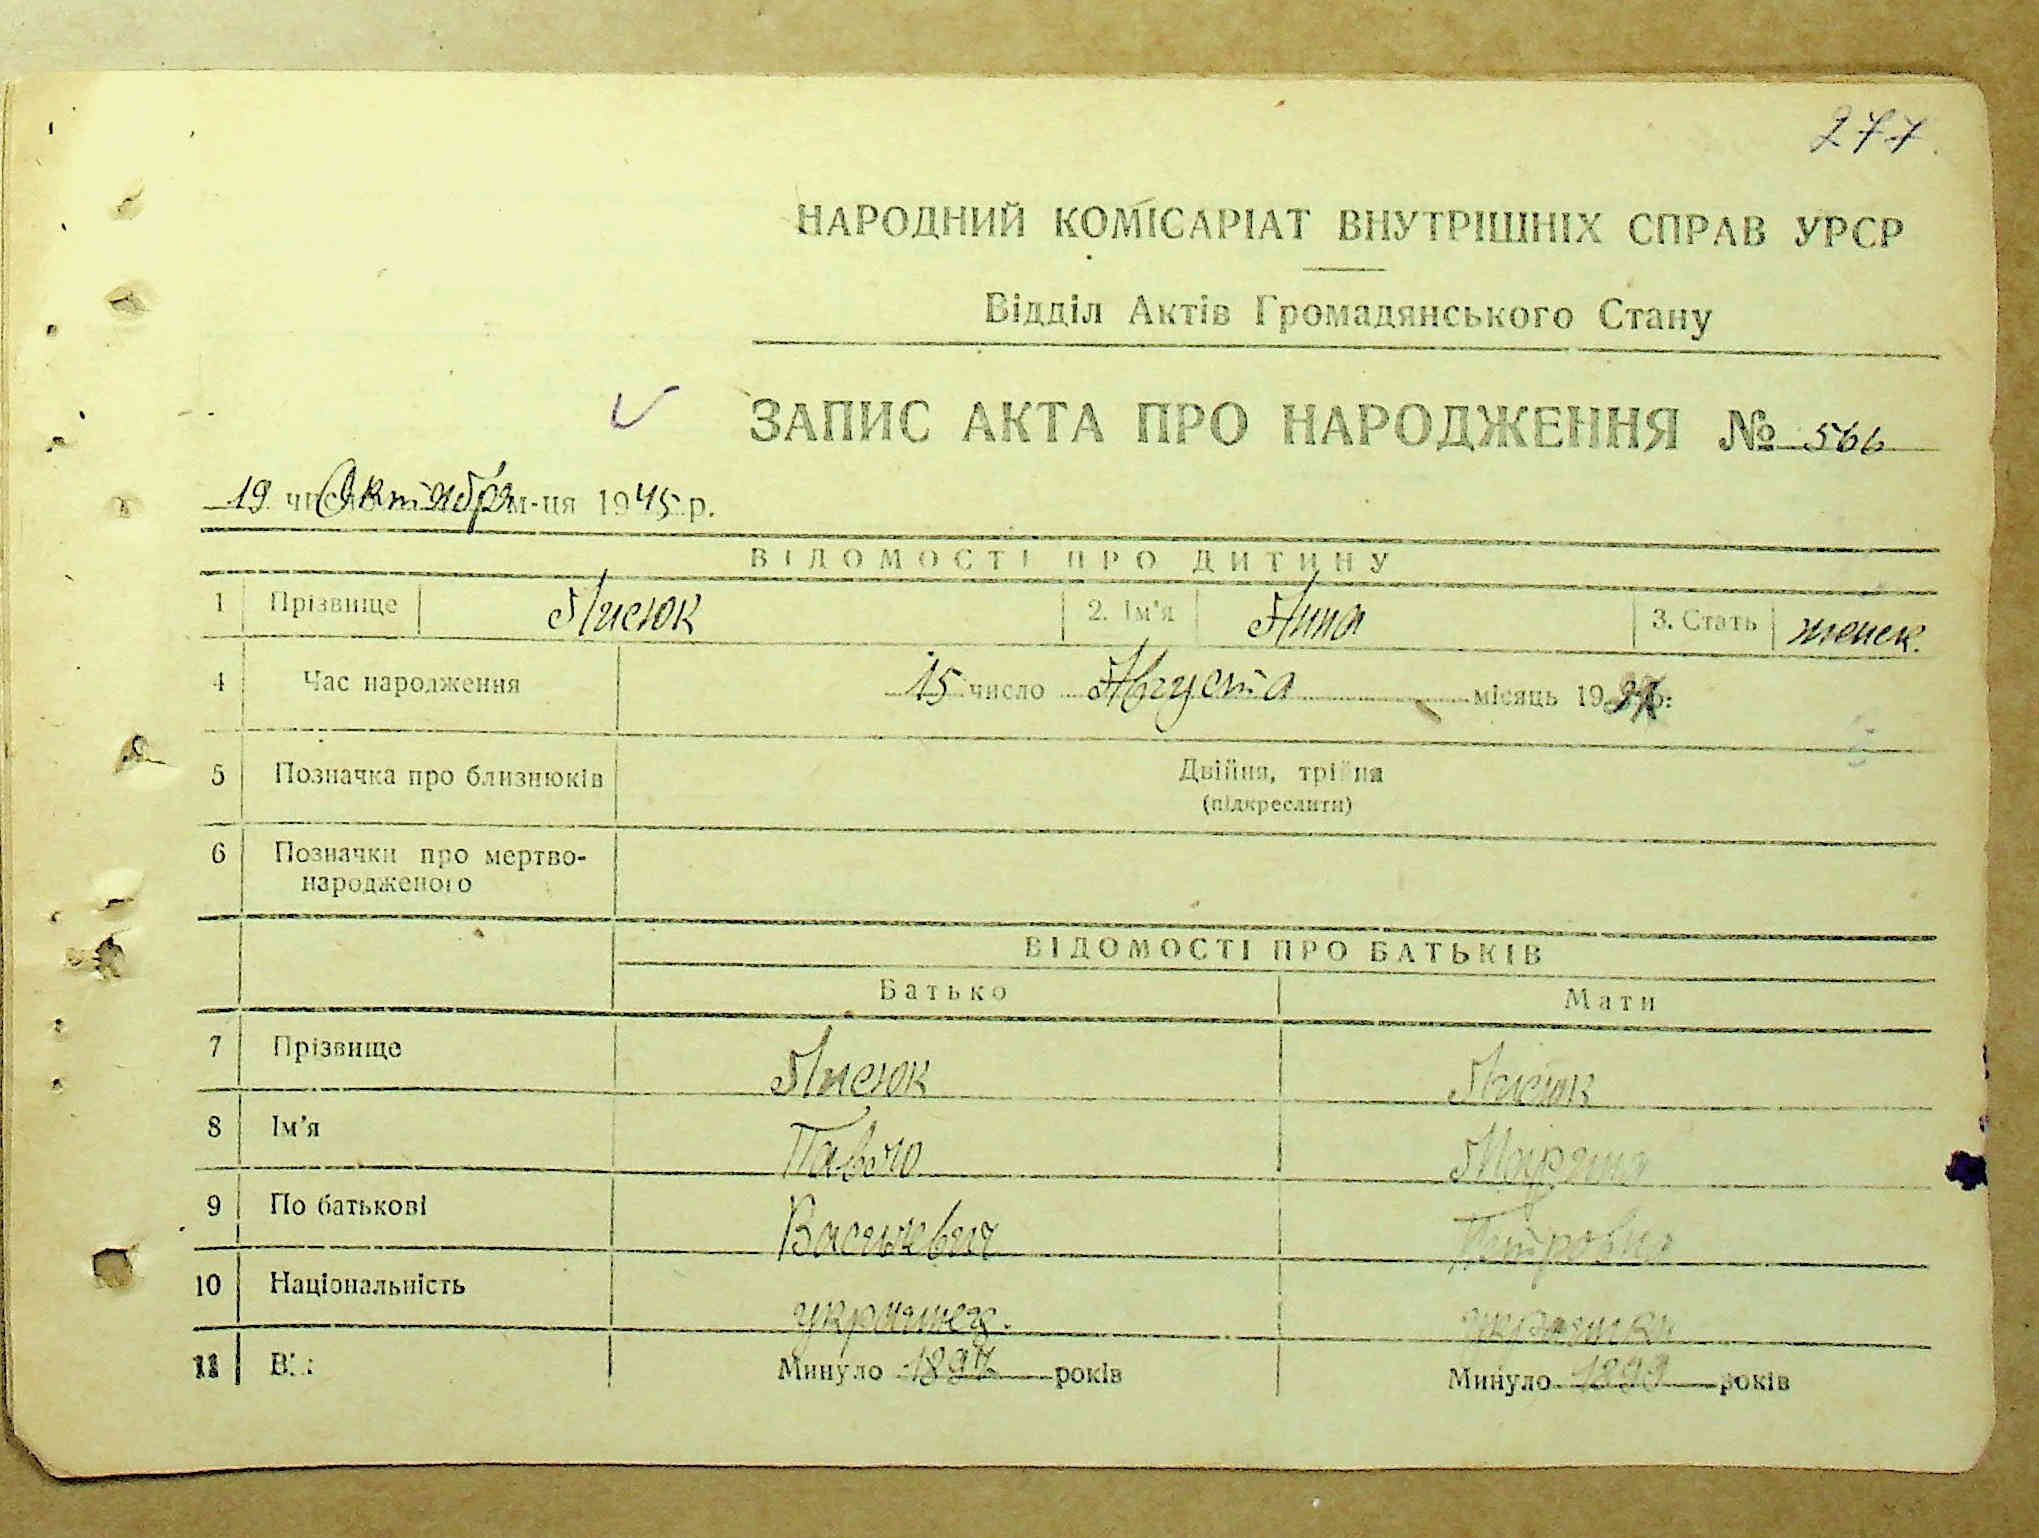 277
НАРОДНИЙ КОМІСАРІАТ ВНУТРІШНІХ СПРАВ УРСР
Відділ Актів Громадянського Стану
ЗАПИС АКТА ПРО НАРОДЖЕННЯ № 566
19 числа Октября м-ця 1945 р.
ВІДОМОСТІ ПРО ДИТИНУ
1 Прізвище Лисюк 2. Ім'я 3. Стать женск.
4 Час народження 15 число Августа місяць 19 р.
5 Позначка про близнюків Двійня, трійня
(підкреслити)
6 Позначки про мертво-
народженого
ВІДОМОСТІ ПРО БАТЬКІВ
Батько Мати
7 Прізвище Лисюк Лисюк
8 Ім'я Павло
9 По батькові Васильевич Петровна
10 Національність украинец. украинка
11 Минуло 1897 років Минуло 1899 років